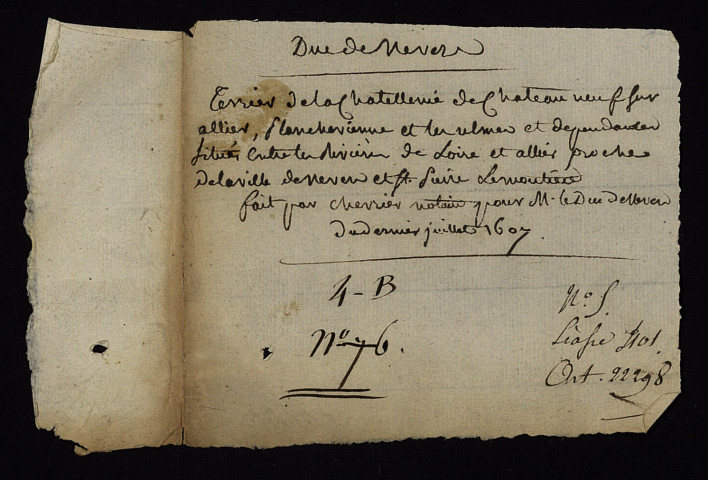 Duc de Nevers
Terrier de la Chatellenie de Chateau neuf sur
allier, et les ulmes et dependances
situés entre les Rivières de Loire et allier proche
de la ville de Nevers et st. Pierre Lemoutier
fait par cherrier notaire pour Mr. le Duc de Nevers
du dernier juillet 1607.
4-B
No. 5.
No. 76.
Liasse
Art. 22298